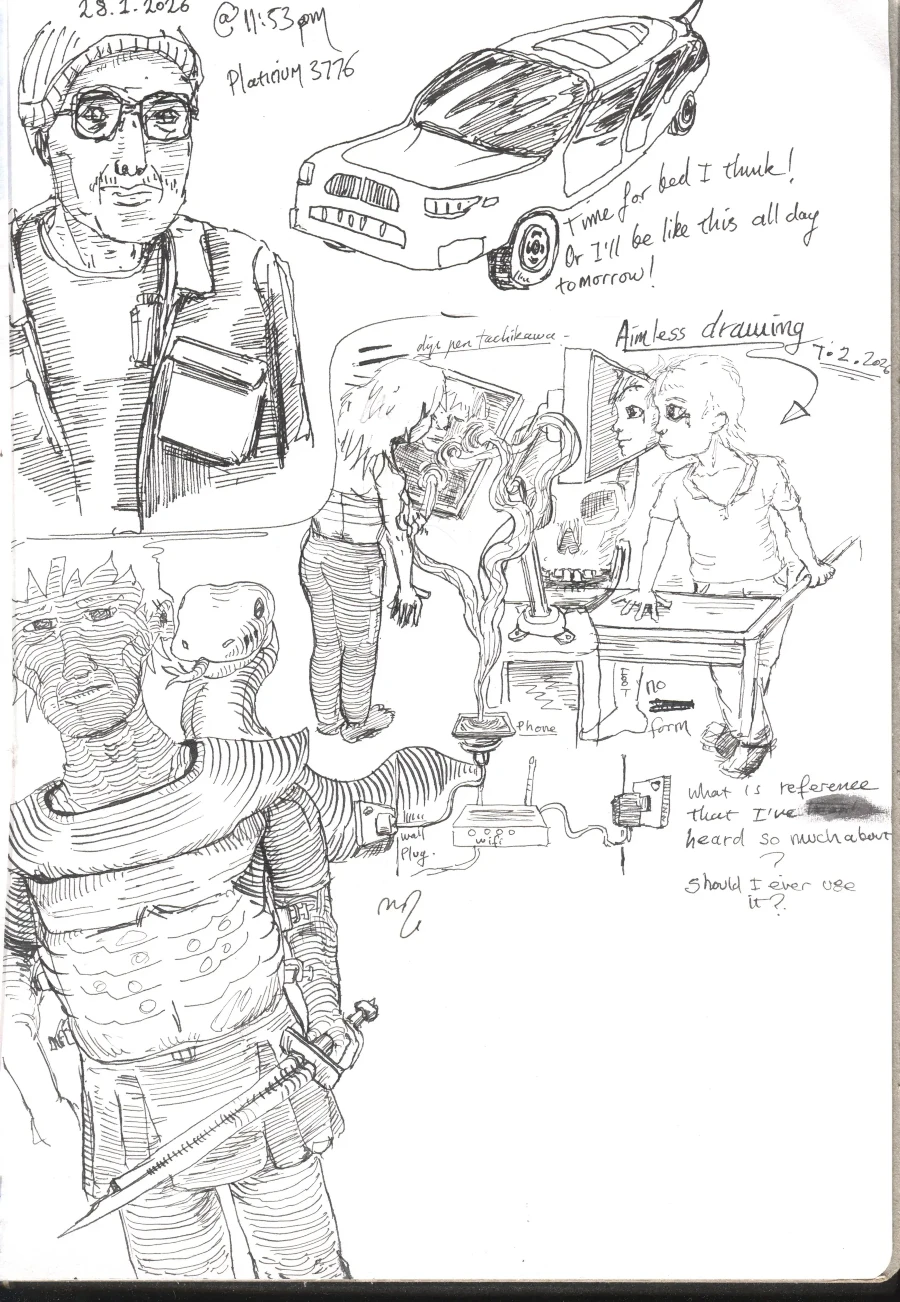 28.1.2026
@ 11:53pm
Platinium 3776
Time for bed I think!
Or I'll be like this all day
tomorrow!
dip pen tachikawa
Aimless drawing
7.2.2026
no
form
Phone
wall
Plug.
wifi
What is reference
that I've
heard so much about
?
Should I ever use
it?